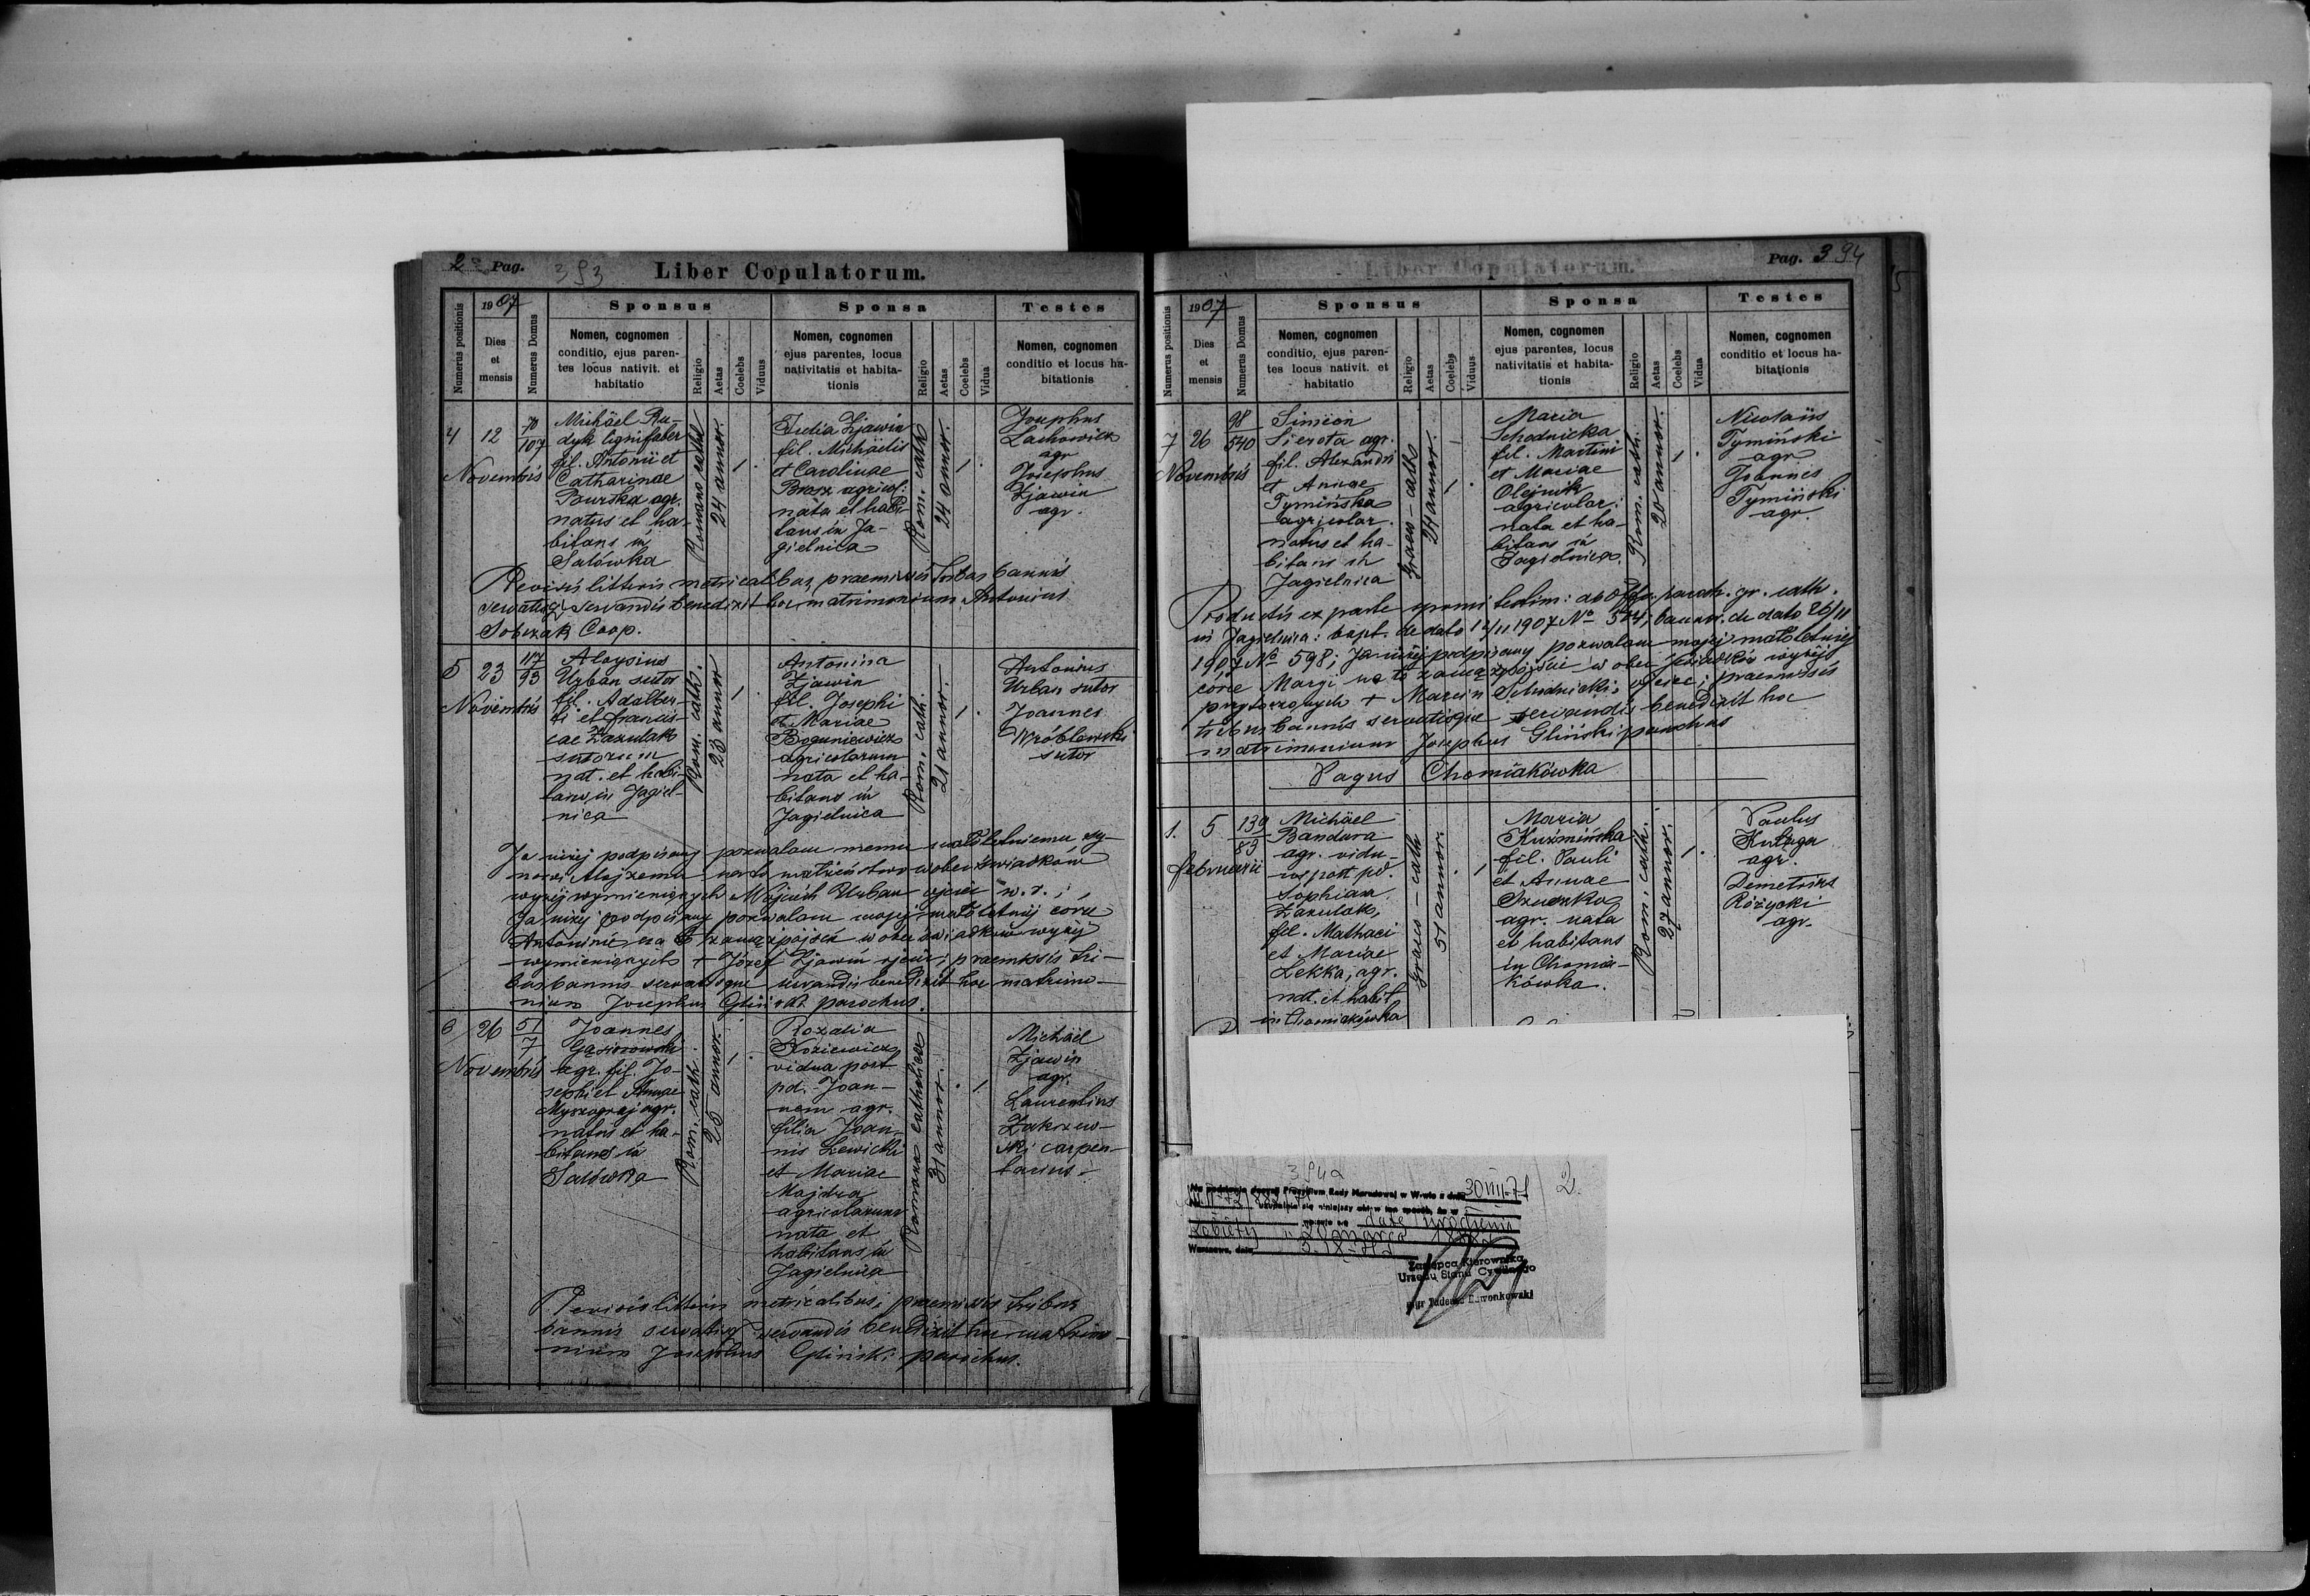 2 Pag. 393 Liber Copulatorum.
Numerus positionis
1907
Dies
et
mensis
Numerus Domus
Sponsus
Nomen, cognomen
conditio, ejus paren-
tes locus nativit. et
habitatio
Religio
Aetas
Coelebs
Viduus
Sponsa
Nomen, cognomen
ejus parentes, locus
nativitatis et habita-
tionis
Religio
Aetas
Coelebs
Vidua
Testes
Nomen, cognomen
conditio et locus ha-
bitationis
4
12
Novembris
70
107
Michäel Ru-
dyk lignifaber
fil. Antonii et
Catharinae
Burska agr.
natus et ha-
bitans in
Salówka
Romano cathol
24 annor.
1
Julia Zjawin
fil. Michäelis
et Carolinae
Brosz agricol:
nata et habi-
tans in Ja-
gielnica
Rom. cath
24 annor.
1
Josephus
Lachowicz
agr
Josephus
Zjawin
agr.
Revisis litteris metricalibus, praemissis tribus bannis
servatisq servandis benedixit hoc matrimonium Antonius
Sobczak Coop.
5
23
Novembris
117
93
Aloysius
Urban sutor
fil. Adalber-
ti et Francis-
cae Zazulak
sutorum
nat. et habi-
tans in Jagiel-
nica
Rom. cath.
23 annor
1
Antonina
Zjawin
fil. Josephi
et Mariae
Boguniewicz
agricolarum
nata et ha-
bitans in
Jagielnica
Rom. cath.
21 annor.
1
Antonius
Urban sutor
Joannes
Wróblewski
sutor
Ja niżej podpisany pozwalam memu małoletniemu sy-
nowi Alojzemu na to małżeństwo wobec świadków
wyżej wymienionych Wojciech Urban ojciec w. r. ;
Ja niżej podpisany pozwalam mojej małoletniej córce
Antoninie na to zamążpójście wobec świadków wyżej
wymienionych + Józef Zjawin ojciec; praemissis tri-
bus bannis servatisque servandis benedixit hoc matrimo-
nium Josephus Gliński parochus.
6
26
Novembris
51
7
Joannes
Gąsiorowski
agr. fil. Jo-
sephi et Annae
agr.
natus et ha-
bitans in
Salówka
Rom. cath
25 annor.
1
Rozalia
Koziewicz
vidua post
pd. Joan-
nem agr.
filia Joan-
nis Lewicki
et Mariae
Majdra
agricolarum
nata et
habitans in
Jagielnica
Romano catholica
31 annor.
1
Michäel
Zjawin
agr.
Laurentius
Zakrzew-
ski carpen-
tarius.
Revisis litteris metricalibus, praemissis tribus
bannis servatisq servandis benedixit hoc matrimo-
nium Josephus Gliński parochus.
Liber Copulatorum. Pag. 3 94
Numerus positionis
1907
Dies
et
mensis
Numerus Domus
Sponsus
Nomen, cognomen
conditio, ejus paren-
tes locus nativit. et
habitatio
Religio
Aetas
Coelebs
Viduus
Sponsa
Nomen, cognomen
ejus parentes, locus
nativitatis et habita-
tionis
Religio
Aetas
Coelebs
Vidua
Testes
Nomen, cognomen
conditio et locus ha-
bitationis
7
26
Novembris
98
540
Simeon
Sierota agr.
fil. Alexandri
et Annae
Tymińska
agricolar.
natus et ha-
bitans in
Jagielnica
Graeco-cath
24 annor.
1
Maria
Schodnicka
fil. Martini
et Mariae
Olejnik
agricolar:
nata et ha-
bitans in
Jagielnica.
Rom. cath.
20 annor.
1
Nicolaus
Tymiński
agr
Joannes
Tymiński
agr.
Productis ex parte sponsi testim: ab Offo. paroch. gr. cath.
in Jagielnica: bapt. de dato 12/11 1907 No 574, bannor. de dato 26/11
1907 No 598; Ja niżej podpisany pozwalam mojej małoletniej
córce Maryi na to zamążpójście w obec świadków wyżej
przytoczonych + Marcin Schodnicki, ojciec; praemissis
tribus bannis servatisque servandis benedixit hoc
matrimonium Josephus Gliński parochus
Pagus Chomiakówka
1.
5
februarii
139
83
Michäel
Bandura
agr. vidu-
us post pd.
Sophiam
Zazulak,
fil. Mathaei
et Mariae
Lekka, agr.
nat. et habit.
in Chomiakówka
Graeco-cath
51 annor.
1
Maria
Kuźmińska
fil. Pauli
et Annae
agr. nata
et habitans
in Chomia-
kówka.
Rom. cath.
27 annor.
1
Paulus
Kulaga
agr.
Demetrius
Różycki
agr.
394a
2.
Na podstawie decyzji Prezydium Rady Narodowej w W-wie z dnia 30 VIII-71
uzupełnia się niniejszy akt w ten sposób, że w
wpisuje się datę urodzenia
kobiety
Warszawa, dnia
Zastępca Kierownika
Urzędu Stanu Cywilnego
mgr Tadeusz